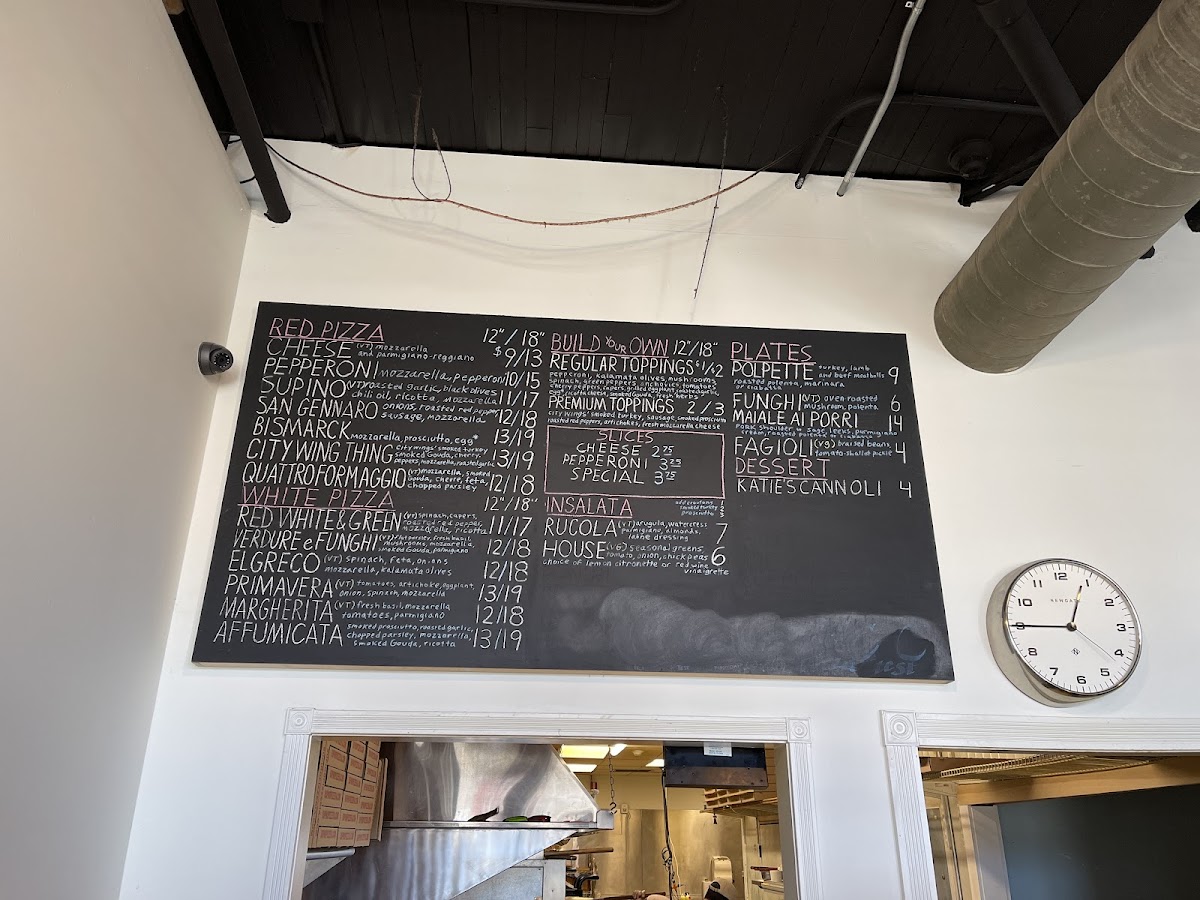 RED PIZZA 12"/18"
CHEESE (VT) mozzarella
and parmigiano-reggiano $9/13
PEPPERONI mozzarella, pepperoni 10/15
SUPINO (VT) roasted garlic, black olives
chili oil, ricotta, mozzarella 11/17
SAN GENNARO onions, roasted red pepper
sausage, mozzarella 12/18
BISMARCK mozzarella, prosciutto, egg* 13/19
CITY WING THING city wings' smoked turkey
smoked Gouda, cherry
peppers, mozzarella, roasted garlic 13/19
QUATTRO FORMAGGIO (VT) mozzarella, smoked
Gouda, chevre, feta,
chopped parsley 12/18
WHITE PIZZA 12"/18"
RED WHITE & GREEN (VT) spinach, capers,
roasted red pepper,
mozzarella, ricotta 11/17
VERDURE e FUNGHI (VT) flat parsley, fresh basil,
mushrooms, mozzarella,
smoked Gouda, parmigiano 12/18
EL GRECO (VT) spinach, feta, onions
mozzarella, kalamata olives 12/18
PRIMAVERA (VT) tomatoes, artichoke, eggplant,
onion, spinach, mozzarella 13/19
MARGHERITA (VT) fresh basil, mozzarella
tomatoes, parmigiano 12/18
AFFUMICATA smoked prosciutto, roasted garlic,
chopped parsley, mozzarella,
smoked Gouda, ricotta 13/19
BUILD YOUR OWN 12"/18"
REGULAR TOPPINGS $1/$2
pepperoni, kalamata olives, mushrooms
spinach, green peppers, anchovies, tomatoes
cherry peppers, capers, grilled eggplant, roasted garlic,
egg*, ricotta cheese, smoked Gouda, fresh herbs
PREMIUM TOPPINGS 2/3
city wings' smoked turkey, sausage, smoked prosciutto
roasted red peppers, artichokes, fresh mozzarella cheese
SLICES
CHEESE 2.75
PEPPERONI 3.25
SPECIAL 3.75
INSALATA
add croutons 1
smoked turkey 2
prosciutto 3
RUCOLA (VT) arugula, watercress
parmigiano, almonds,
lemon dressing 7
HOUSE (VG) seasonal greens
tomato, onion, chick peas 6
choice of lemon citronette or red wine
vinaigrette
PLATES
POLPETTE turkey, lamb
and beef meatballs 9
roasted polenta, marinara
or ciabatta
FUNGHI (VT) oven roasted
mushroom, polenta 6
MAIALE AI PORRI 14
Pork shoulder w sage, leeks, parmigiano
cream, roasted polenta or ciabatta
FAGIOLI (VG) braised beans,
tomato-shallot pickle 4
DESSERT
KATIE'S CANNOLI 4
NEWGATE
12
1
2
3
4
5
6
7
8
9
10
11
N